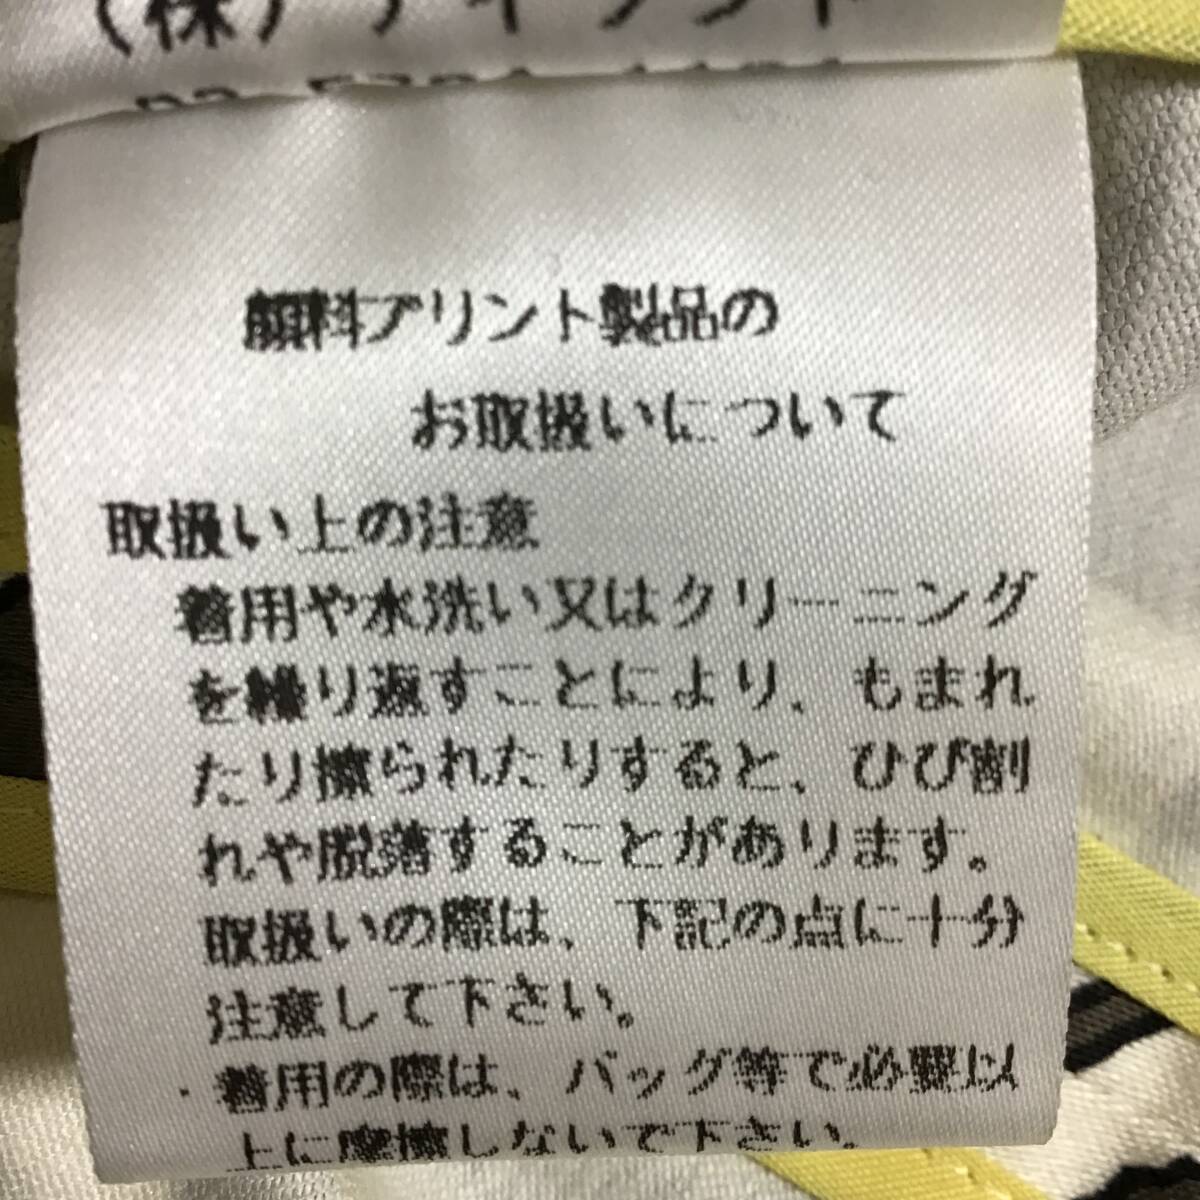 (株)
顔料プリント製品の
お取扱いについて
取扱い上の注意
着用や水洗い又はクリーニング
を繰り返すことにより、もまれ
たり擦られたりすると、ひび割
れや脱落することがあります。
取扱いの際は、下記の点に十分
注意して下さい。
・着用の際は、バッグ等で必要以
上に摩擦しないで下さい。